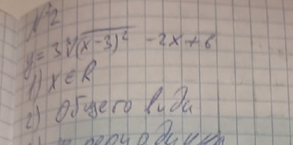 №2
y = 3∛(x-3)² - 2x + 6
1) x ∈ R
2) Общего вида